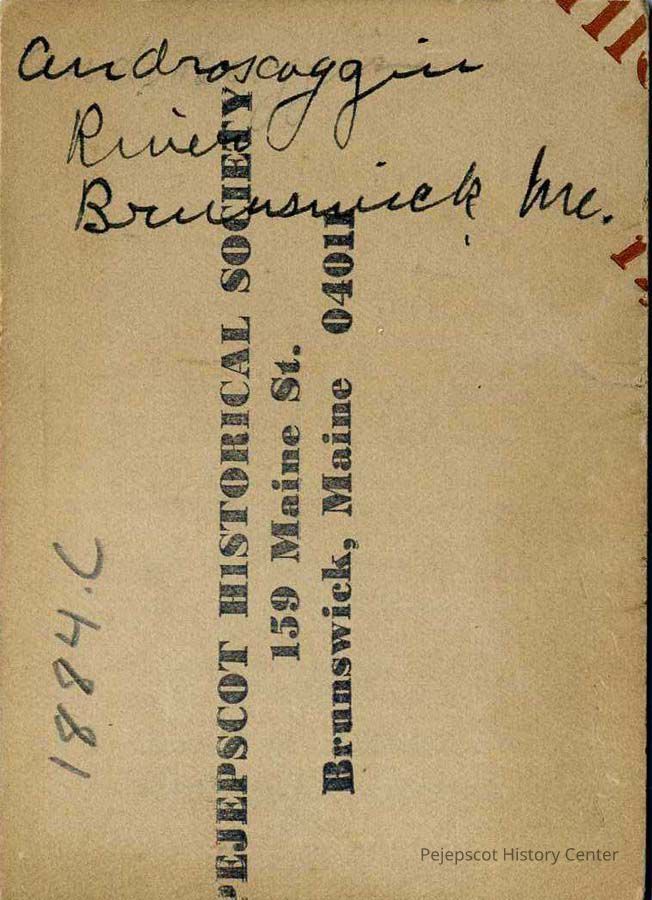 Androscoggin
River
Brunswick Me.
PEJEPSCOT HISTORICAL SOCIETY
159 Maine St.
Brunswick, Maine 04011
1884.C
Pejepscot History Center